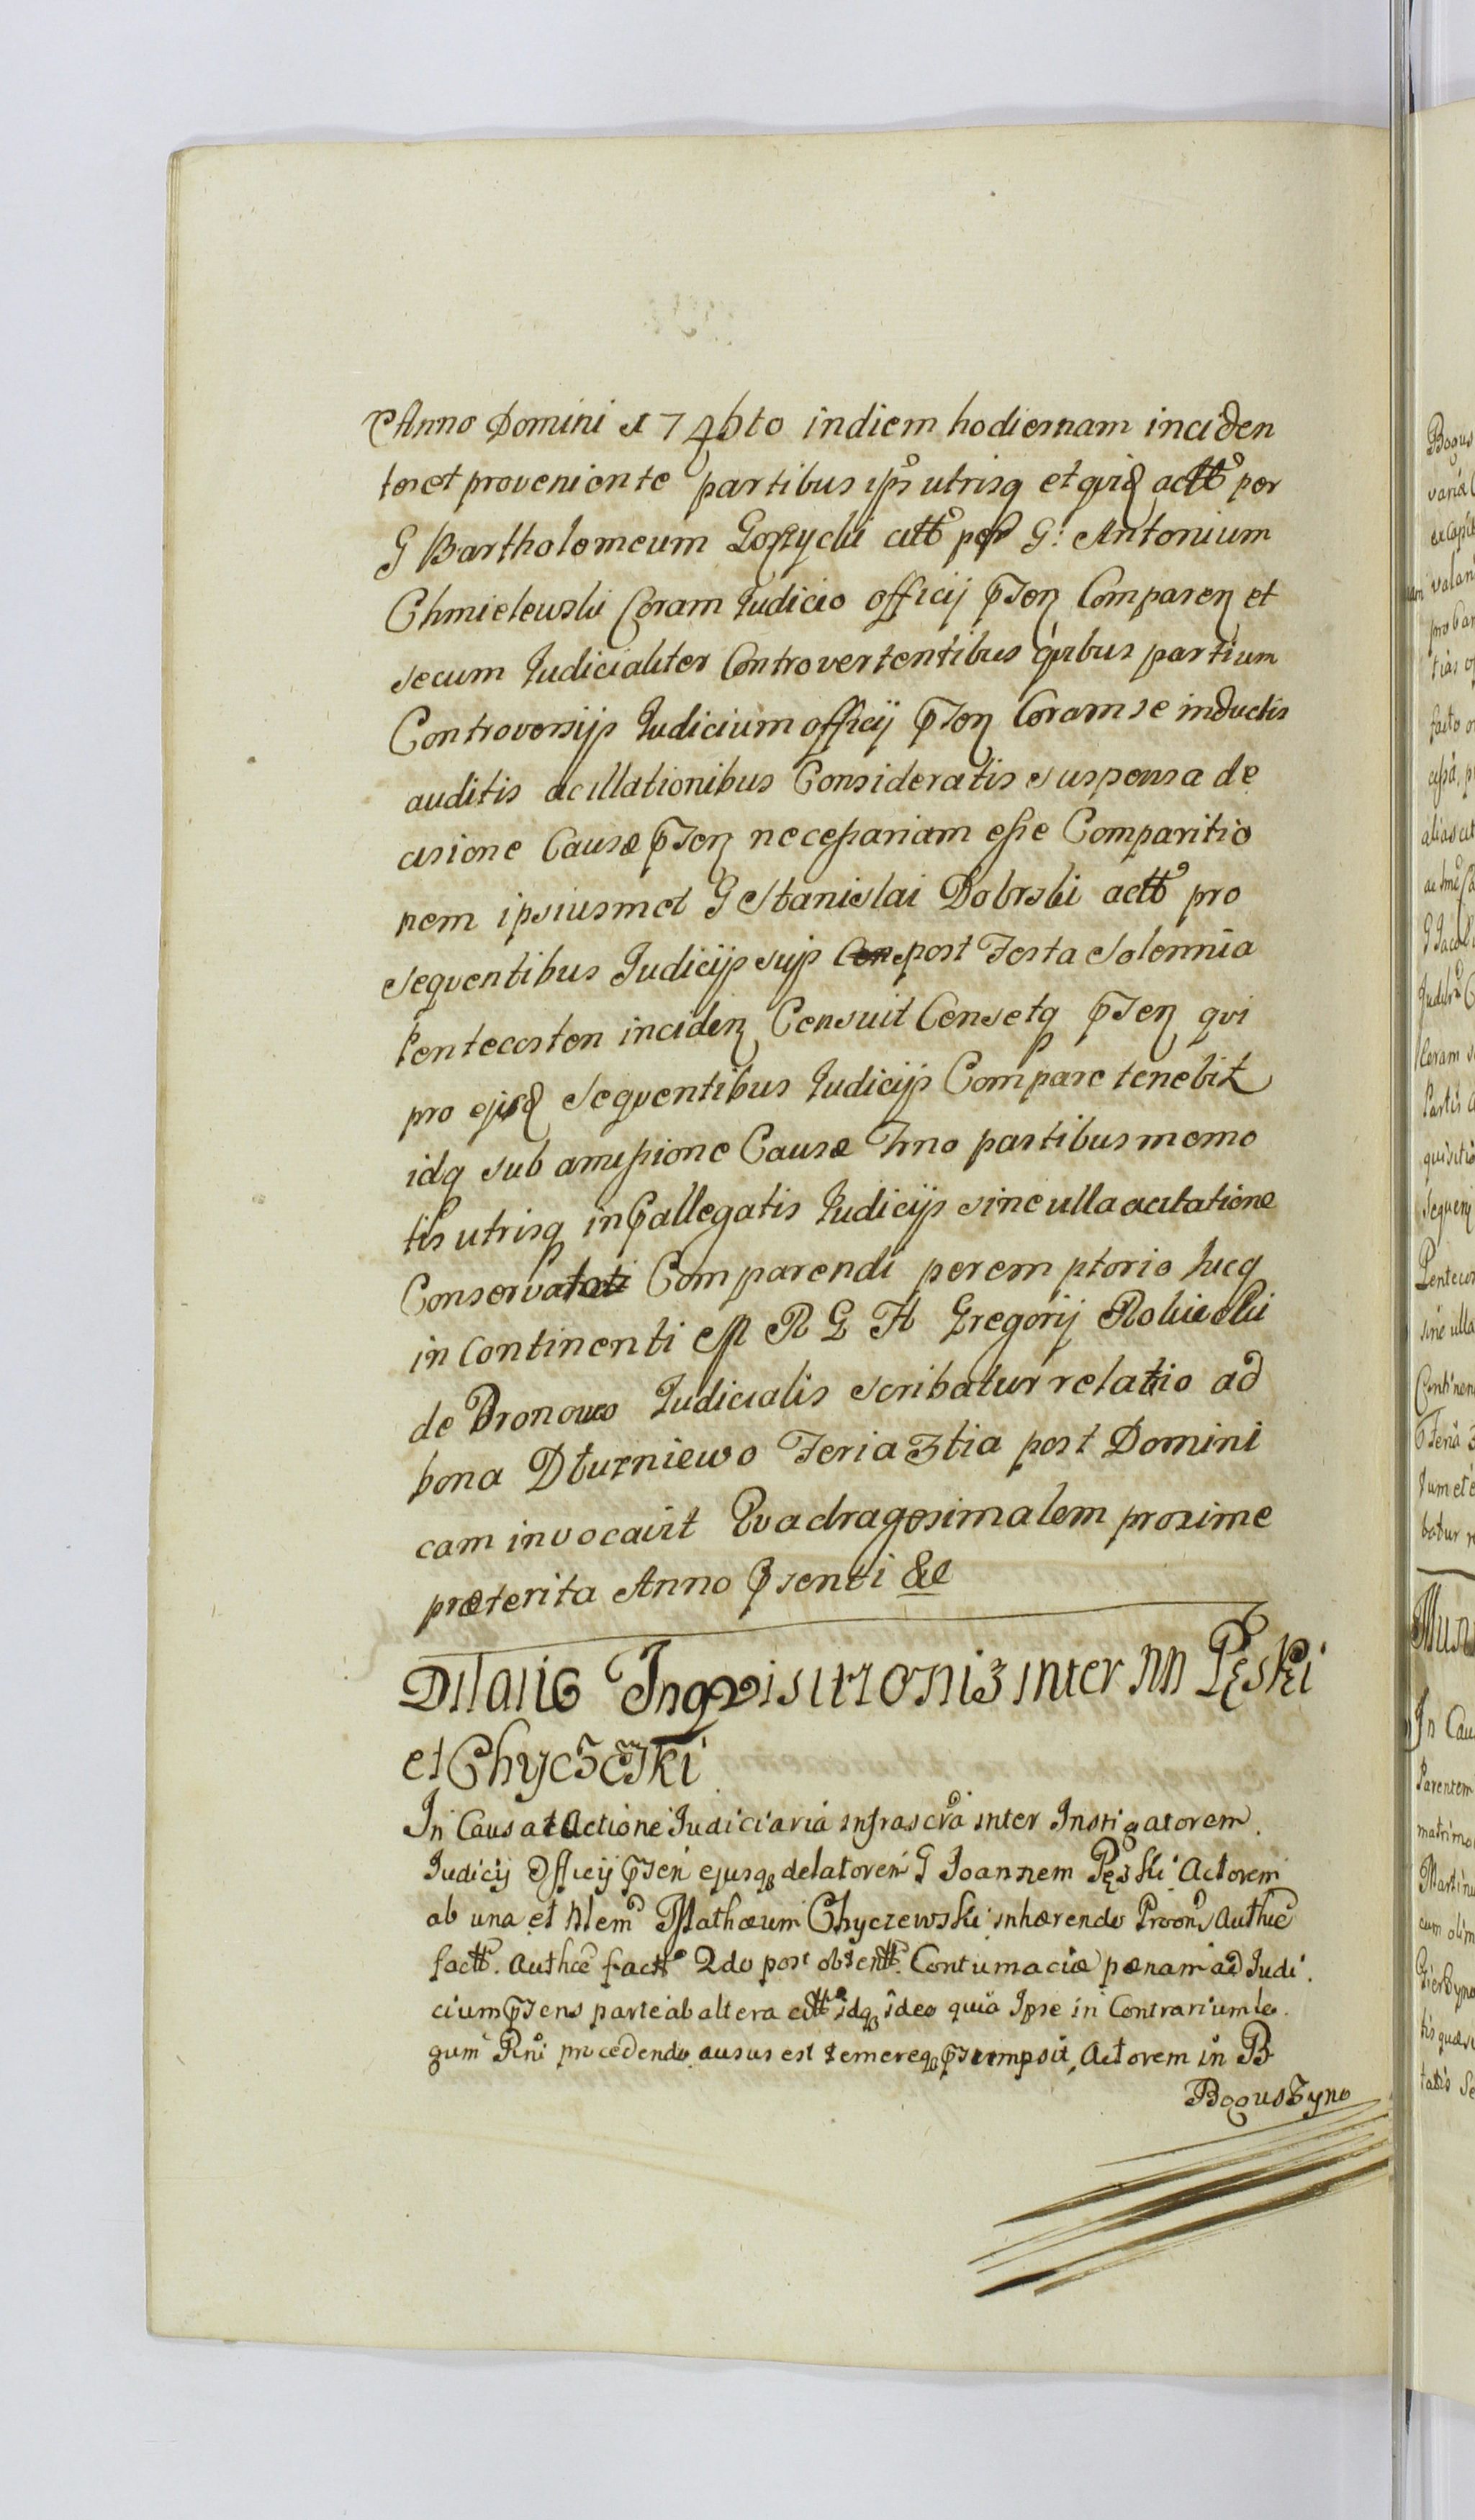 Anno Domini 1746to in diem hodiernam inciden
ter et proveniente partibus ips utrisq et qvid actto per
G Bartholomeum Gorzycki citto per G: Antonium
Chmielewski Coram Judicio officij pnsen Comparen et
secum Judicialiter Controvertentibus qvibus partium
Controversijs Judicium officij pnsen Coram se inductis
auditis ac illationibus Consideratis suspensa de
cisione Causæ pnsen necessariam esse Comparitio
nem ipsiusmet G Stanislai Dobrski actto pro
seqventibus Judicijs suis post Festa Solennia
Pentecosten inciden Censuit Censetq pnsen qvi
pro ejisd Seqventibus Judicijs Compare tenebit
idq sub amissione Causæ Trno partibus memo
tis utrisq in pallegatis Judicijs sine ulla acitatione
Conservato Comparendi peremptorio hucq
in continenti est R G H Gregorij Rokicki
de Bronowo Judicialis scribatur relatio ad
bona Dturniewo Feria 3tia post Domini
cam invocavit Qvadragesimalem proxime
præterita Anno pnsenti &c
Dilatio Inqvisitionis inter NN Pęski
et Chyczewski
In Causa et Actione Judiciaria infrascra inter Instigatorem
Judicij Officij pnsen ejusq delatorem G Joannem Pęski Actorem
ab una et Ntem Mathæum Chyczewski inhærendo Proons Authce
factt. Authce factto 2do post obtentt. Contumaciæ pænam ad Judi
cium pnsens parte ab altera citto idq ideo quia Ipse in Contrarium le
gum Rni procedendo ausus est temereq pnsumpsit, Actorem in B
Boguszyno